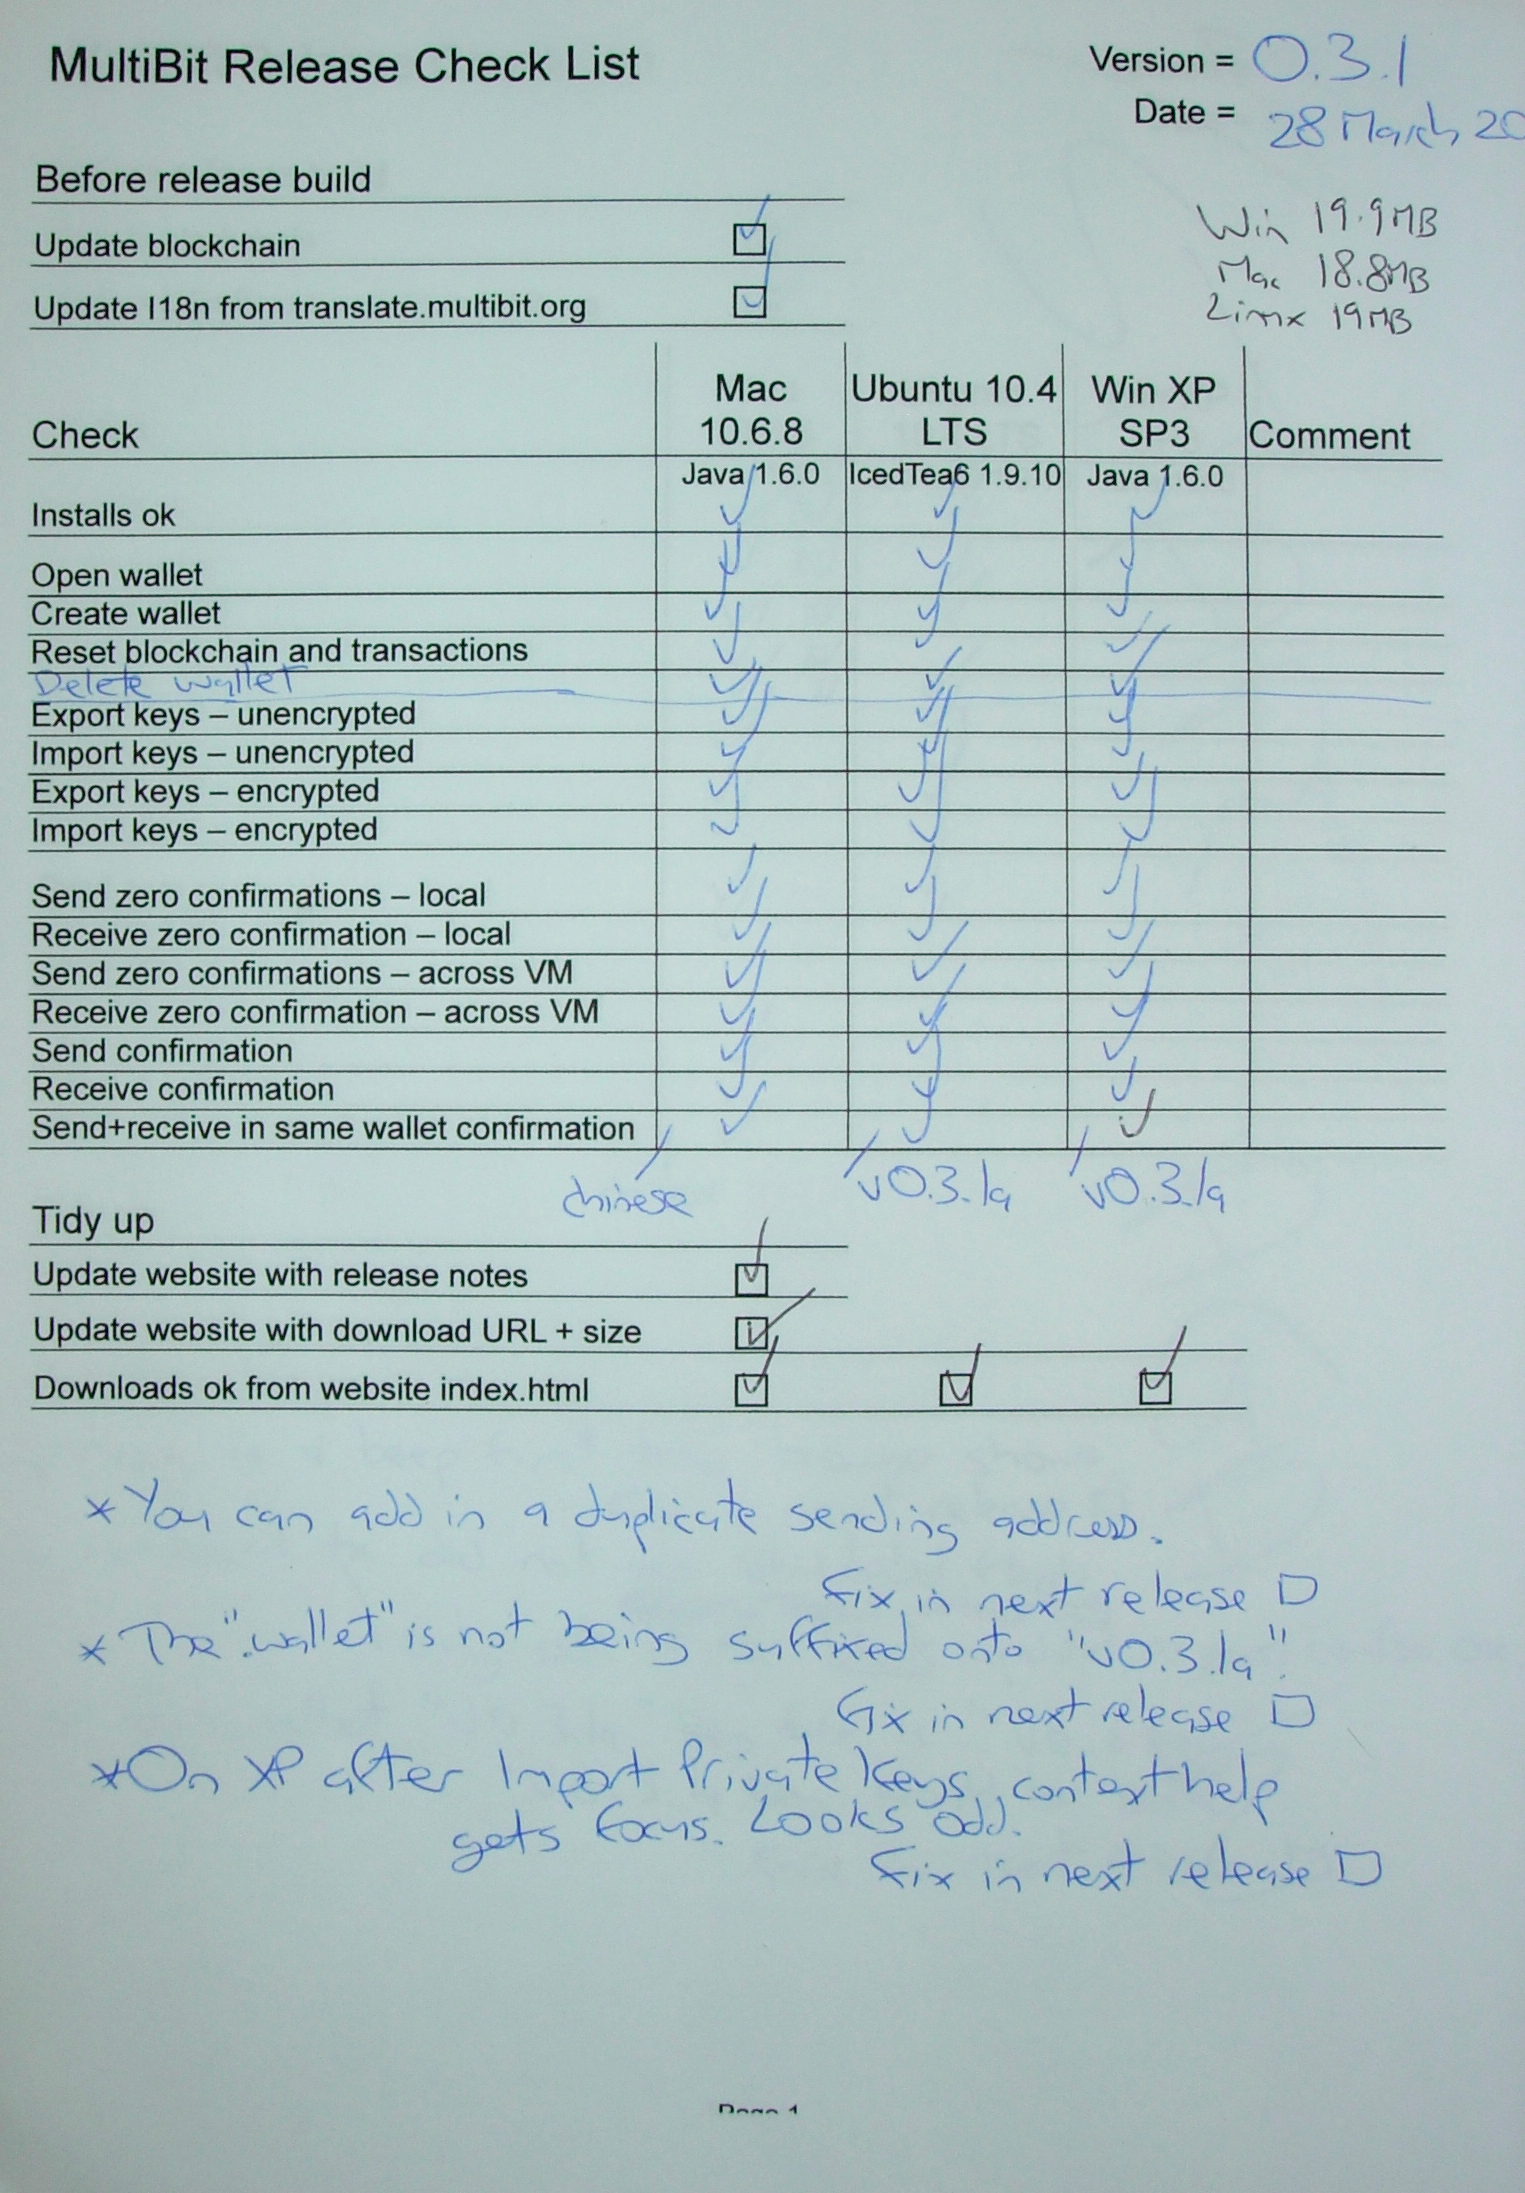 MultiBit Release Check List
Version = 0.3.1
Date = 28 March 20
Before release build
Update blockchain
Update I18n from translate.multibit.org
Win 19.9MB
Mac 18.8MB
Linux 19MB
Check Mac 10.6.8 Ubuntu 10.4 LTS Win XP SP3 Comment
Java 1.6.0 IcedTea6 1.9.10 Java 1.6.0
Installs ok
Open wallet
Create wallet
Reset blockchain and transactions
Delete wallet
Export keys – unencrypted
Import keys – unencrypted
Export keys – encrypted
Import keys – encrypted
Send zero confirmations – local
Receive zero confirmation – local
Send zero confirmations – across VM
Receive zero confirmation – across VM
Send confirmation
Receive confirmation
Send+receive in same wallet confirmation
chinese v0.3.1a v0.3.1a
Tidy up
Update website with release notes
Update website with download URL + size
Downloads ok from website index.html
* You can add in a duplicate sending address.
Fix in next release
* The ".wallet" is not being suffixed onto "v0.3.1a".
Fix in next release
* On XP after Import Private Keys, context help
gets focus. Looks odd.
Fix in next release
Page 1